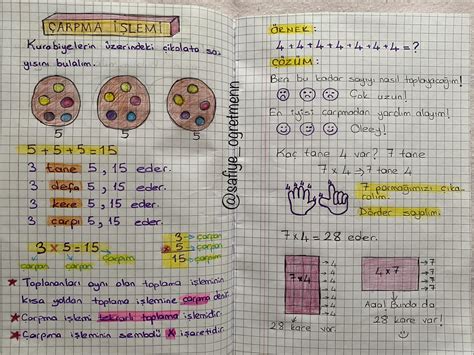 ÇARPMA İŞLEMİ
Kurabiyelerin üzerindeki çikolata sa-
yısını bulalım.
5 5 5
5+5+5=15
3 tane 5, 15 eder.
3 defa 5, 15 eder.
3 kere 5, 15 eder.
3 çarpı 5, 15 eder.
3 x 5 = 15
çarpan çarpan çarpım
3 → çarpan
x 5 → çarpan
15 → çarpım
★ Toplananları aynı olan toplama işleminin
kısa yoldan toplama işlemine çarpma denir.
★ Çarpma işlemi tekrarlı toplama işlemidir.
★ Çarpma işleminin sembolü x işaretidir.
@safiye_ogretmenn
ÖRNEK:
4+4+4+4+4+4+4=?
ÇÖZÜM:
Ben bu kadar sayıyı nasıl toplayacağım!
Çok uzun!
En iyisi çarpmadan yardım alayım!
Oleey!
Kaç tane 4 var? 7 tane
7 x 4 → 7 tane 4
7 parmağımızı çıka-
ralım.
Dörder sayalım.
7x4 = 28 eder.
7x4
→ 4
→ 4
→ 4
→ 4
→ 4
→ 4
→ 4
28 kare var!
4x7
→ 7
→ 7
→ 7
→ 7
Aaa! Bunda da
28 kare var!